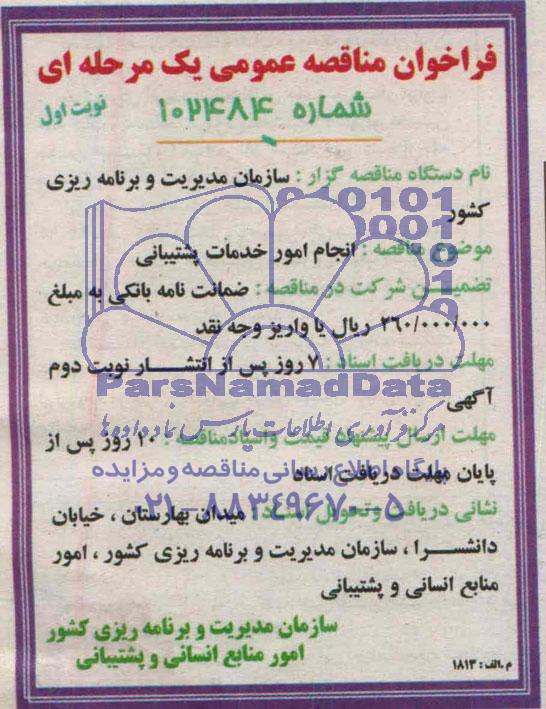 فراخوان مناقصه عمومی یک مرحله ای
شماره ۱۰۲۴۸۴
نوبت اول
نام دستگاه مناقصه گزار : سازمان مدیریت و برنامه ریزی
کشور
موضوع مناقصه : انجام امور خدمات پشتیبانی
تضمیـن شرکت در مناقصه : ضمانت نامه بانکی به مبلغ
۲۶۰/۰۰۰/۰۰۰ ریال یا واریز وجه نقد
مهلت دریافت اسناد : ۷ روز پس از انتشـار نوبت دوم
آگهی
ParsNamadData
مرکز فرآوری اطلاعات پارس نماد داده ها
مهلت ارسال پیشنهاد قیمت و اسناد مناقصه : ۱۰ روز پس از
پایان مهلت دریافت اسناد
پایگاه اطلاع رسانی مناقصه و مزایده
نشانی دریافت و تحویل اسناد : میدان بهارستان ، خیابان
۰۲۱-۸۸۳۴۹۶۷۰-۵
دانشسـرا ، سازمان مدیریت و برنامه ریزی کشور ، امور
منابع انسانی و پشتیبانی
سازمان مدیریت و برنامه ریزی کشور
امور منابع انسانی و پشتیبانی
م .الف : ۱۸۱۳